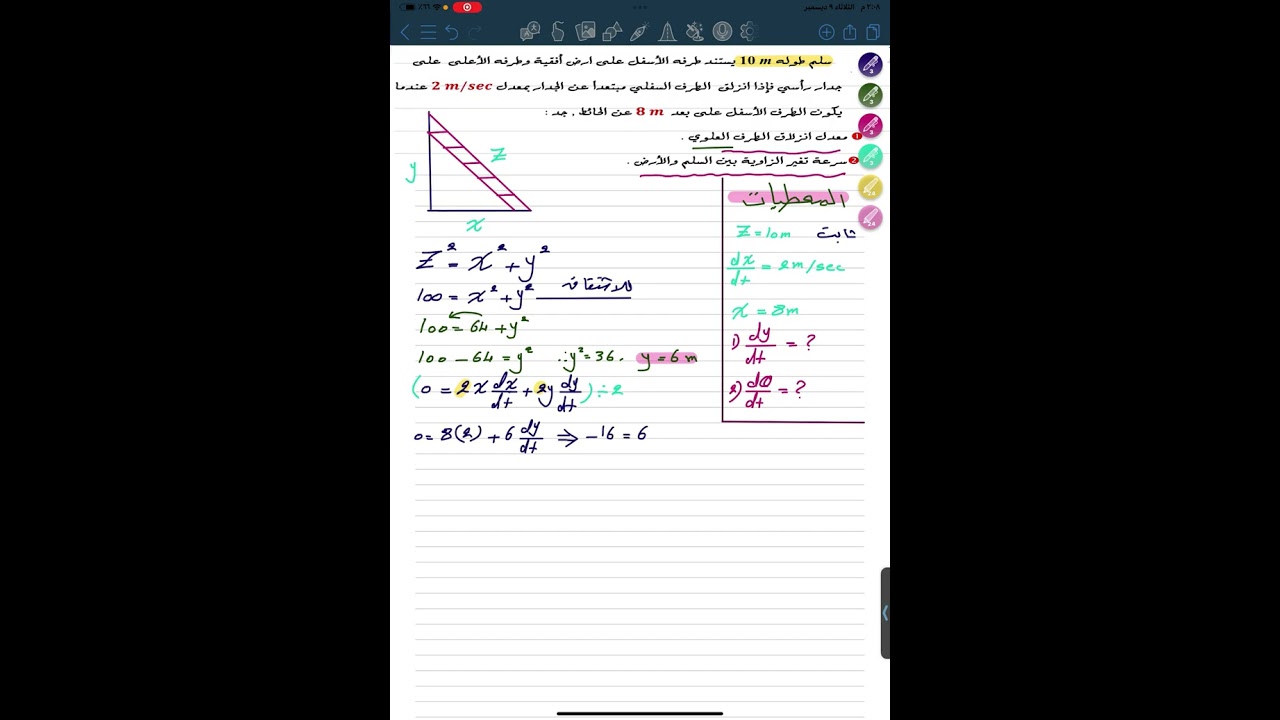 ٢:٠٨ م الثلاثاء ٩ ديسمبر
٦٦٪
سلم طوله 10 m يستند طرفه الأسفل على ارض أفقية وطرفه الأعلى على
جدار رأسي فإذا انزلق الطرف السفلي مبتعداً عن الجدار بمعدل 2 m/sec عندما
يكون الطرف الأسفل على بعد 8 m عن الحائط . جد :
1 معدل انزلاق الطرف العلوي .
2 سرعة تغير الزاوية بين السلم والأرض .
y
Z
x
المعطيات
Z = 10m ثابت
dx/dt = 2m/sec
x = 8m
1) dy/dt = ?
2) dθ/dt = ?
Z² = x² + y²
100 = x² + y² للاشتقاق
100 = 64 + y²
100 - 64 = y² ∴ y² = 36 . y = 6 m
(0 = 2x dx/dt + 2y dy/dt) ÷ 2
0 = 8(2) + 6 dy/dt ⇒ -16 = 6
3
3
3
3
24
24